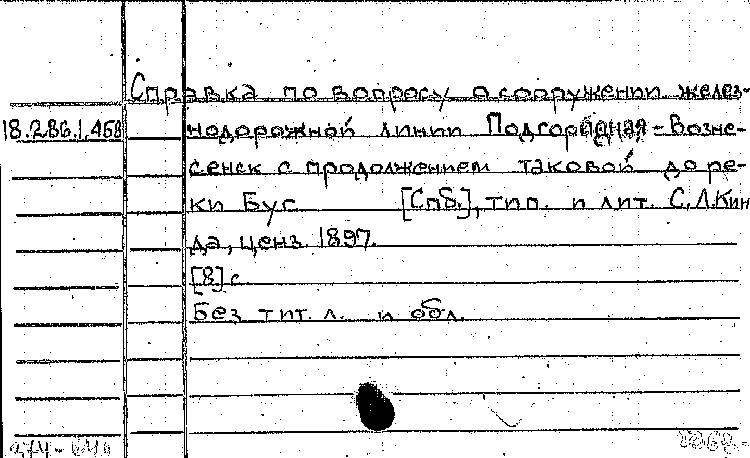 Справка по вопросу о сооружении желез-
18.286.1.468 нодорожной линии Подгородная-Возне-
сенск с продолжением таковой до ре-
ки Буг [Спб.], тип. и лит. С.Л.Кин
да, ценз. 1897.
[8] с
Без тит. л. и обл.